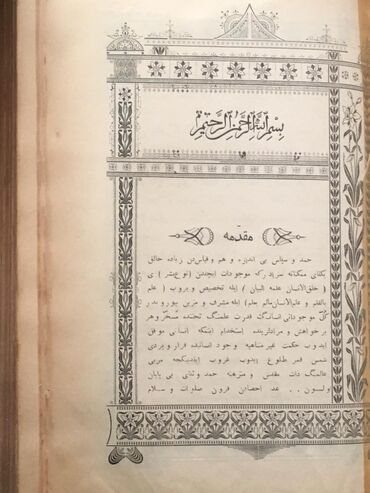 بسم الله الرحمن الرحيم
مقدمه
حمد و سپاس بی اندازه و هم و قیاس‌دن زیاده خالق
یکتای متکانه سزادر که موجودات ایچندن (نوع بشر) ی
(خلق الانسان علمه البیان) ایله تخصیص و یروب (علم
بالقلم و علم الانسان مالم یعلم) ایله مشرف و مربی بیورو بدر
کل موجوداتی انسانک قدرت علمنک تحتنده مسخر و هر
بر خواهش و مرادلرینده استخدام ایتمکه انسانی موفق
ایدوب حکمت غیر متناهیه وجود انسانیده قرار ویردی
شمس قمر طلوع ایدوب غروب ایدینجیکجه مربی
عالمک ذات مقدس و منزهنه حمد و ثنای بی پایان
اولسون . . عد احصادن فزون صلوات و سلام